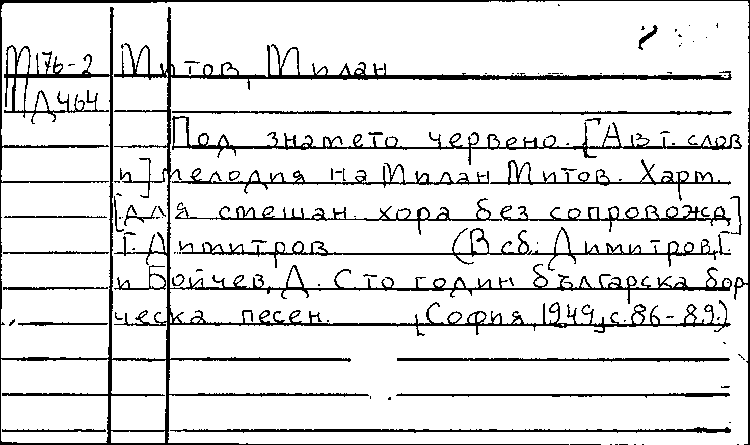 М176-2 Митов, Милан
Д464
Под знамето червено. [Авт. слов
и] мелодия на Милан Митов. Харм.
[для смешан. хора без сопровожд]
Г. Димитров (В сб: Димитров, Г.
и Бойчев, Д. Сто годин българска бор-
ческа песен. [София, 1949] с. 86-89.)